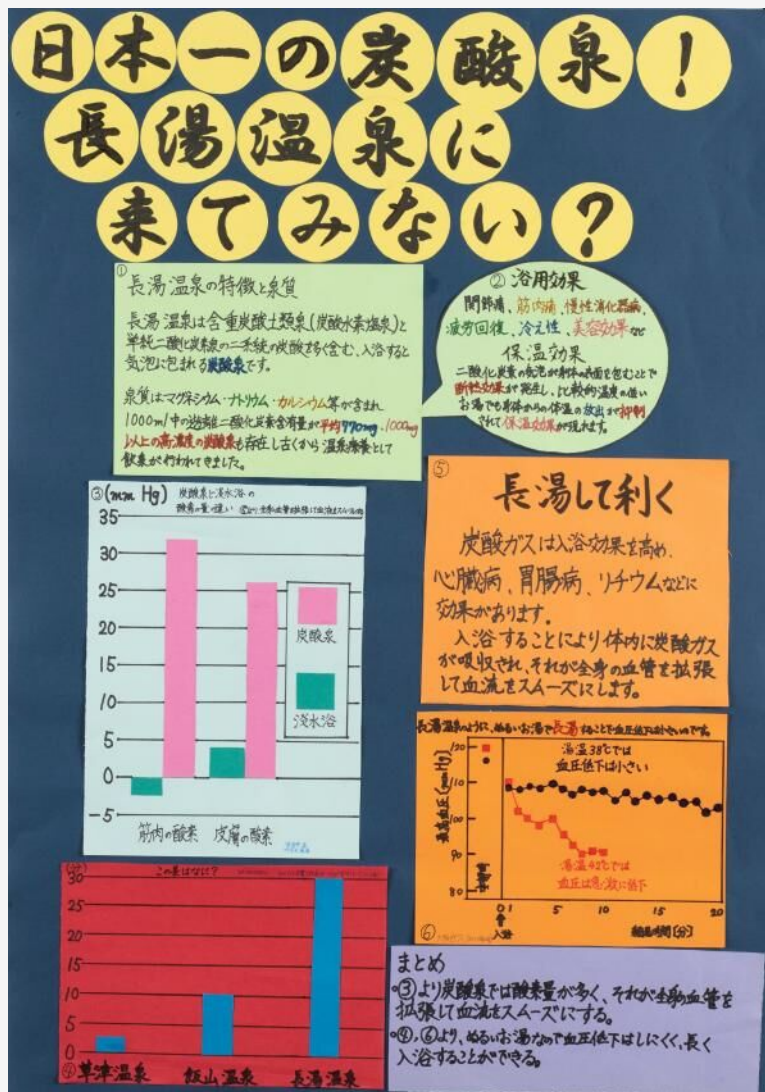 日本一の炭酸泉!
長湯温泉に
来てみない?
①
長湯温泉の特徴と泉質
長湯温泉は含重炭酸土類泉(炭酸水素塩泉)と
単純二酸化炭素泉の二系統の炭酸を多く含む、入浴すると
気泡に包まれる炭酸泉です。
泉質はマグネシウム・ナトリウム・カルシウム等が含まれ
1000ml中の遊離二酸化炭素含有量が平均770mg、1000mg
以上の高濃度の炭酸泉も存在し古くから温泉療養として
飲泉が行われてきました。
② 浴用効果
関節痛、筋肉痛、慢性消化器病、
疲労回復、冷え性、美容効果など
保温効果
二酸化炭素の気泡が身体の表面を包むことで
断熱効果が発生し、比較的温度の低い
お湯でも身体からの体温の放出が抑制
されて保温効果が現れます。
③(mmHg) 炭酸泉と淡水浴の
酸素の量の違い
35
30
25
20
15
10
5
0
-5
炭酸泉
淡水浴
筋肉の酸素 皮膚の酸素
⑤
長湯して利く
炭酸ガスは入浴効果を高め、
心臓病、胃腸病、リチウムなどに
効果があります。
入浴することにより体内に炭酸ガス
が吸収され、それが全身の血管を拡張
して血流をスムーズにします。
長湯温泉のように、ぬるいお湯で長湯することで血圧低下は小さいのです。
最高血圧(mmHg)
120
110
100
90
80
湯温38℃では
血圧低下は小さい
湯温42℃では
血圧は急激に低下
0 1 5 10 15 20
入浴
経過時間[分]
⑥
この差はなに?
30
25
20
15
10
5
0
④草津温泉 飯山温泉 長湯温泉
まとめ
・③より炭酸泉では酸素量が多く、それが全身の血管を
拡張して血流をスムーズにする。
・④,⑥より、ぬるいお湯なので血圧低下はしにくく、長く
入浴することができる。